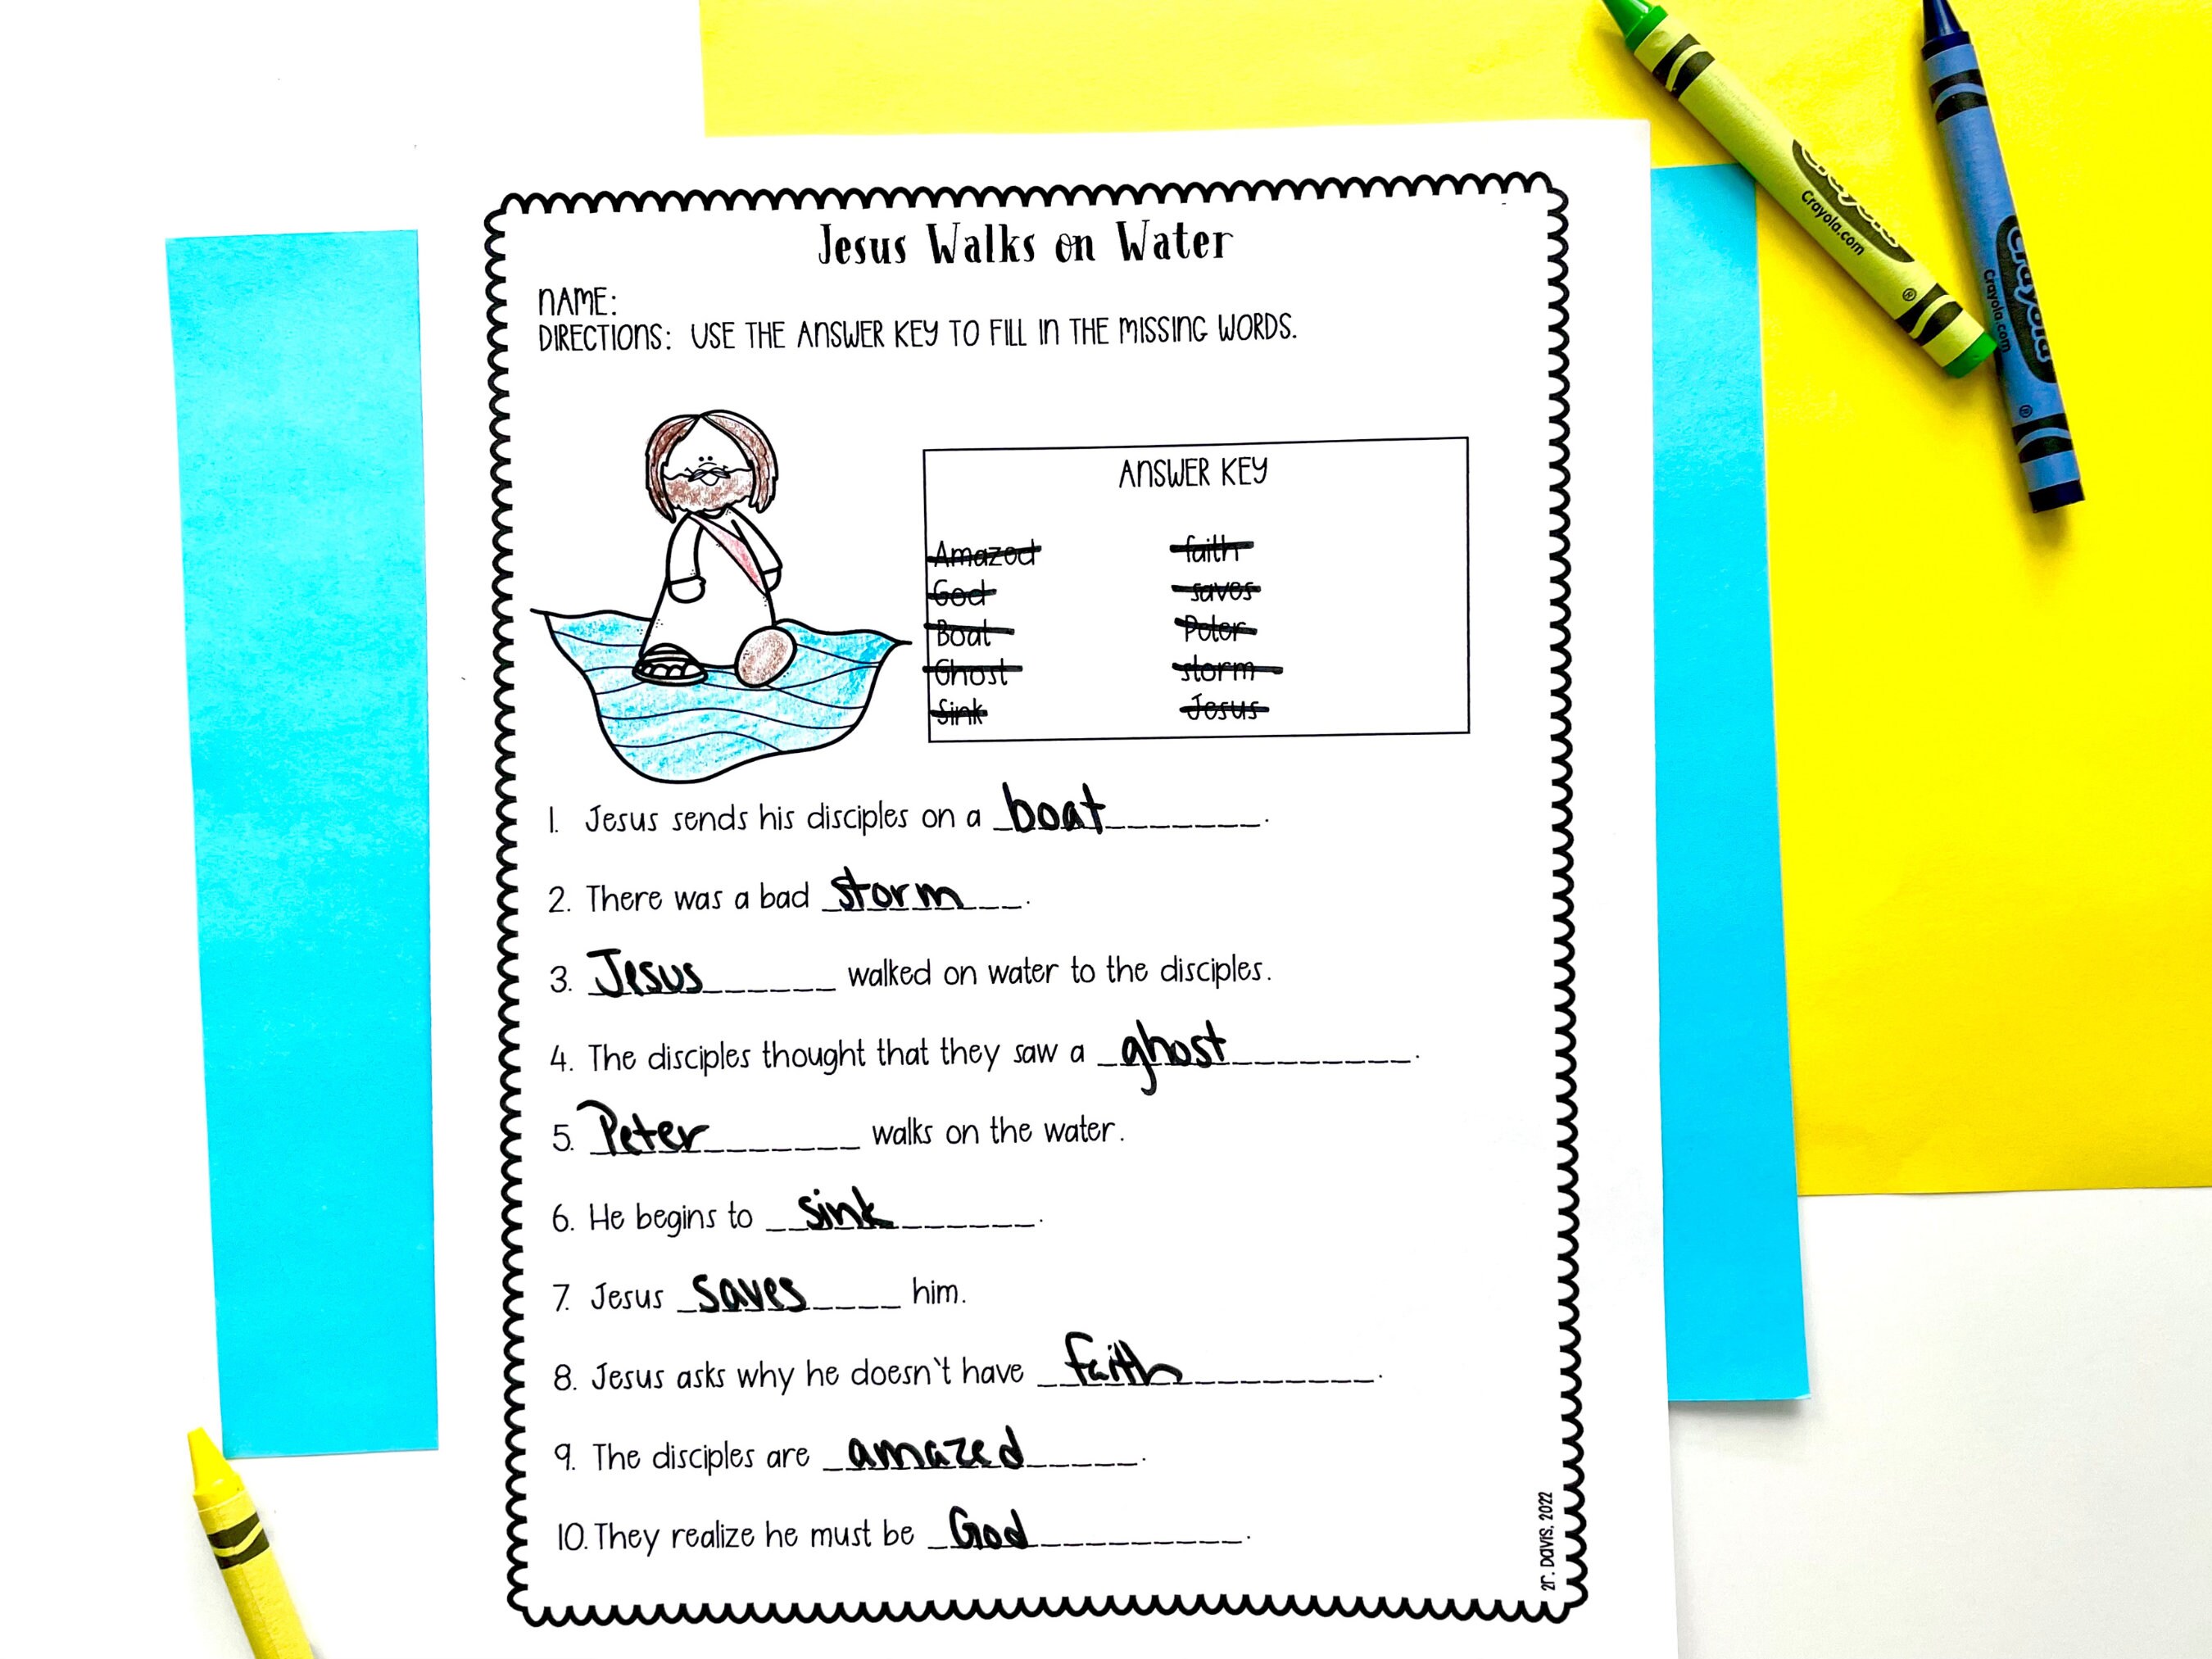 Jesus Walks on Water
NAME:
DIRECTIONS: USE THE ANSWER KEY TO FILL IN THE MISSING WORDS.
ANSWER KEY
Amazed faith
God saves
Boat Peter
Ghost storm
Sink Jesus
1. Jesus sends his disciples on a boat.
2. There was a bad storm.
3. Jesus walked on water to the disciples.
4. The disciples thought that they saw a ghost.
5. Peter walks on the water.
6. He begins to sink.
7. Jesus saves him.
8. Jesus asks why he doesn't have faith.
9. The disciples are amazed.
10. They realize he must be God.
Davis, 2022
Crayola
Crayola.com
Crayola
Crayola.com